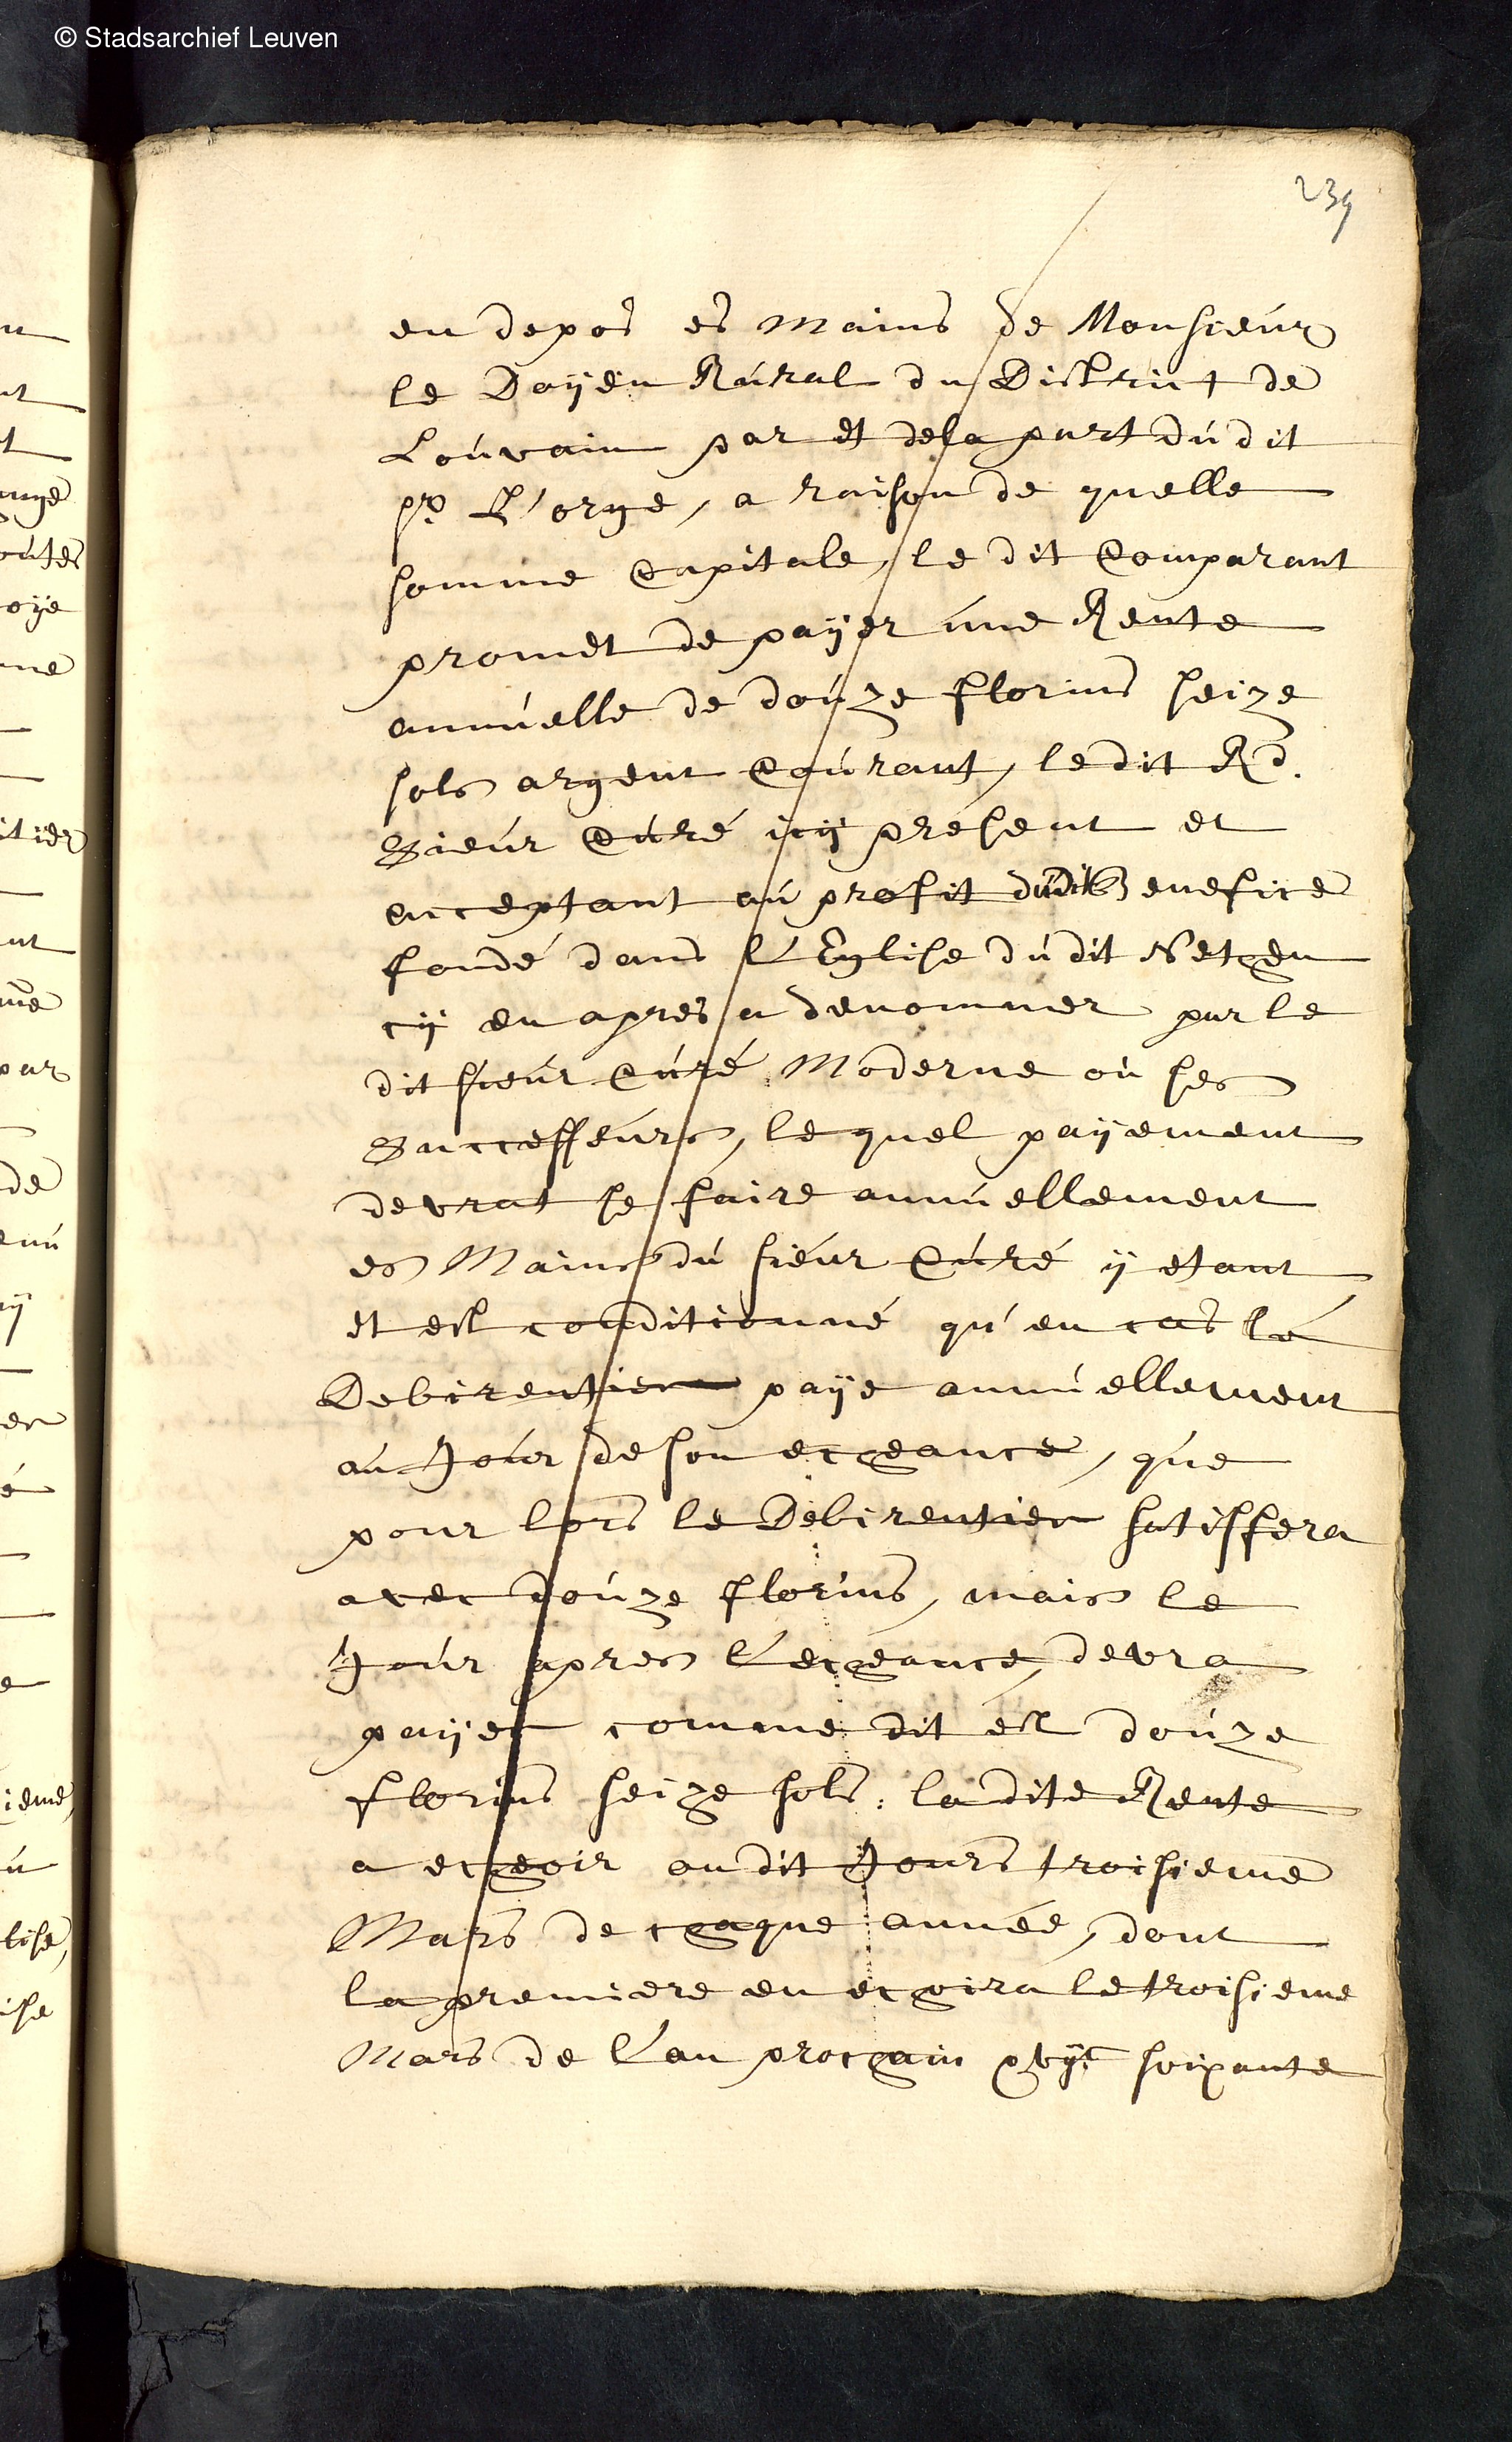 © Stadsarchief Leuven
239
en depos es mains de Monsieur
le Doÿen Rúral du District de
Loúvain par et de la part dúdit
Sr. L'orge, a raison de quelle
somme Capitale, le dit Comparant
promet de paÿer úne Rente
annúelle de doúze florins seize
sols argent Coúrant, ledit Rd.
Sieúr Cúré icÿ présent et
acceptant aú profit dúdit Benefice
fondé dans l'Eglise dúdit Nethen
cÿ en apres a denommer par le
dit sieúr Cúré Moderne oú ses
Successeúrs, lequel paÿement
devrat se faire annúellement
es Mains dú siéur Cúré ÿ etant
et est conditionné qu'en cas le
Debirentier paÿe annúellement
aú Joúr de son echeance, qúe
pour lors le Debirentier satisfera
avec doúze florins, mais le
Joúr apres l'echéance, devra
paÿer comme dit est doúze
florins seize sols: la dite Rente
a echeoir au dit Jours troisieme
Mars de chaque année, dont
la premiere en echoira le troisieme
Mars de l'an prochain xvijc soixante